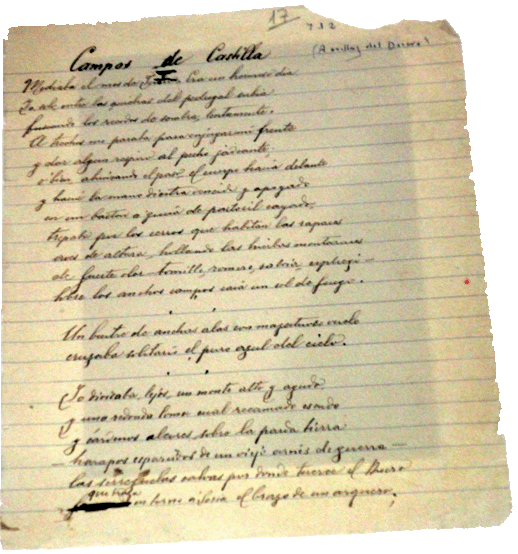 17
Campos de Castilla
(A orillas del Duero)
Mediaba el mes de Era un hermoso dia
Yo solo entre las quiebras del pedregal subia
buscando los recodos de sombra, lentamente.
A trechos me paraba para enjugar mi frente
y dar algun respiro al pecho jadeante
ó bien, ahincando el paso, el cuerpo hacia delante
y hacia la mano diestra vencido y apoyado
en un baston á guisa de pastoril cayado,
trepaba por los cerros que habitan las rapaces
aves de altura, hollando las hierbas montaraces
de fuerte olor - tomillo, romero, salvia, espliego -
Sobre los anchos campos caia un sol de fuego.
Un buitre de anchas alas con majestuoso vuelo
cruzaba solitario el puro azul del cielo.
Yo divisaba, lejos, un monte alto y agudo
y una redonda loma cual recamado escudo
y cárdenos alcores sobre la parda tierra
- harapos esparcidos de un viejo arnés de guerra -
las serrezuelas calvas por donde tuerce el Duero
que traza
en torno á Soria el brazo de un arquero,